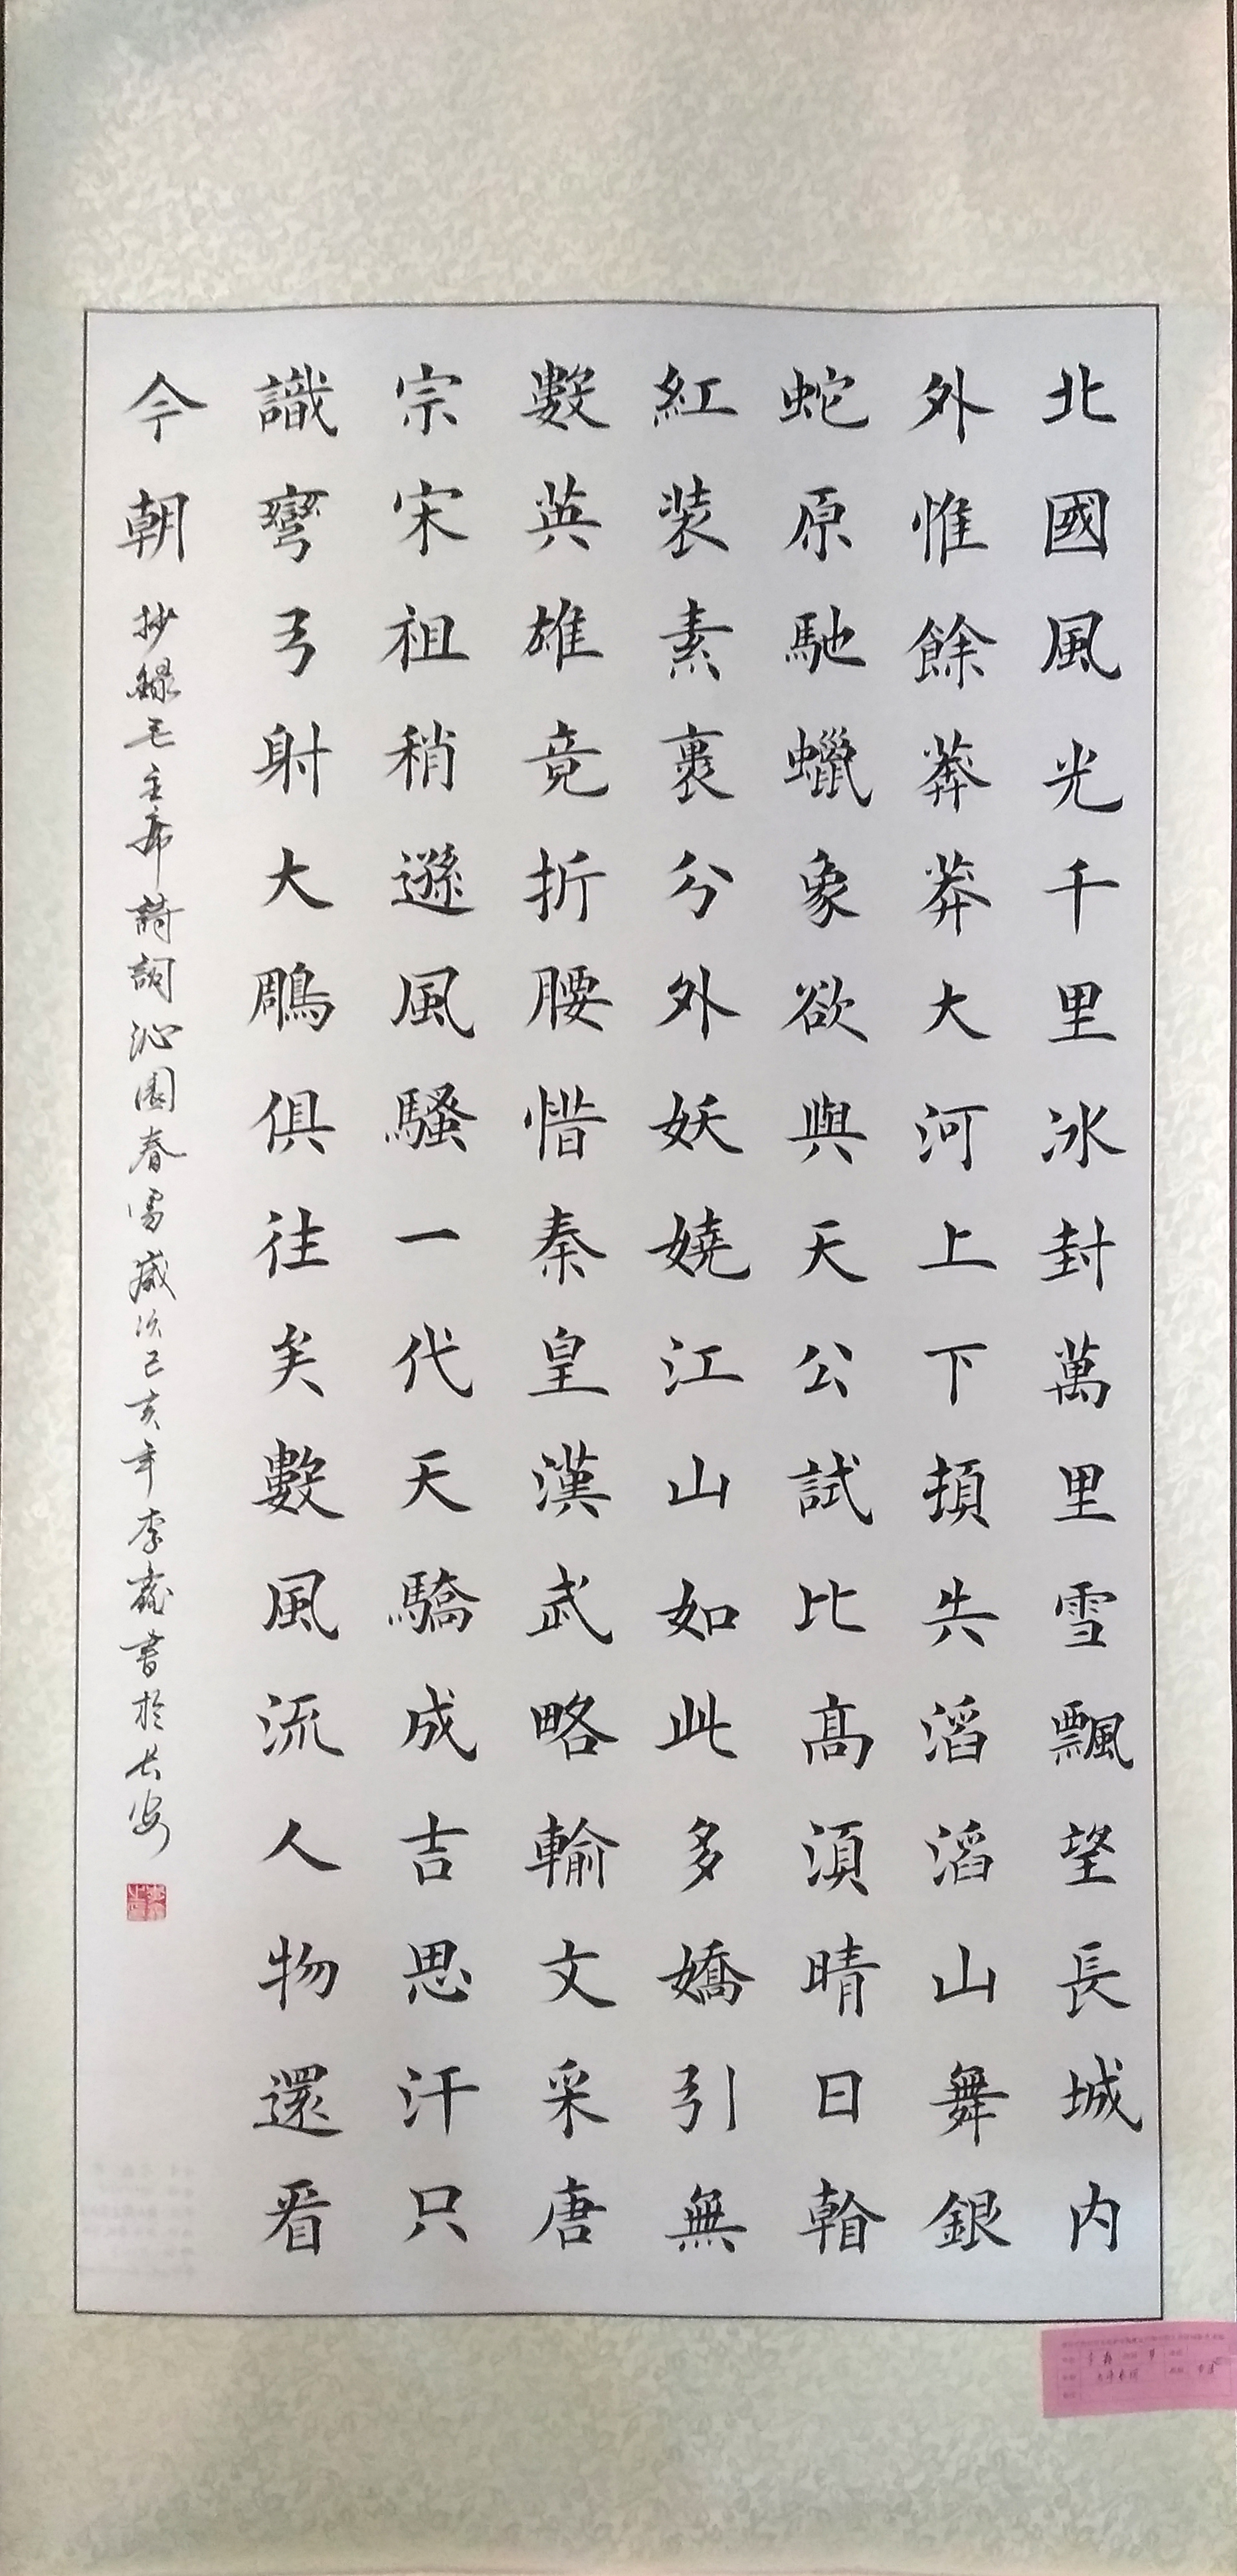 北國風光千里冰封萬里雪飄望長城内
外惟餘莽莽大河上下頓失滔滔山舞銀
蛇原馳蠟象欲與天公試比高須晴日看
紅装素裹分外妖嬈江山如此多嬌引無
數英雄竟折腰惜秦皇漢武略輸文采唐
宗宋祖稍遜風騷一代天驕成吉思汗只
識彎弓射大鵰俱往矣數風流人物還看
今朝 抄錄毛主席詩詞沁園春雪歲次己亥年李書於长安